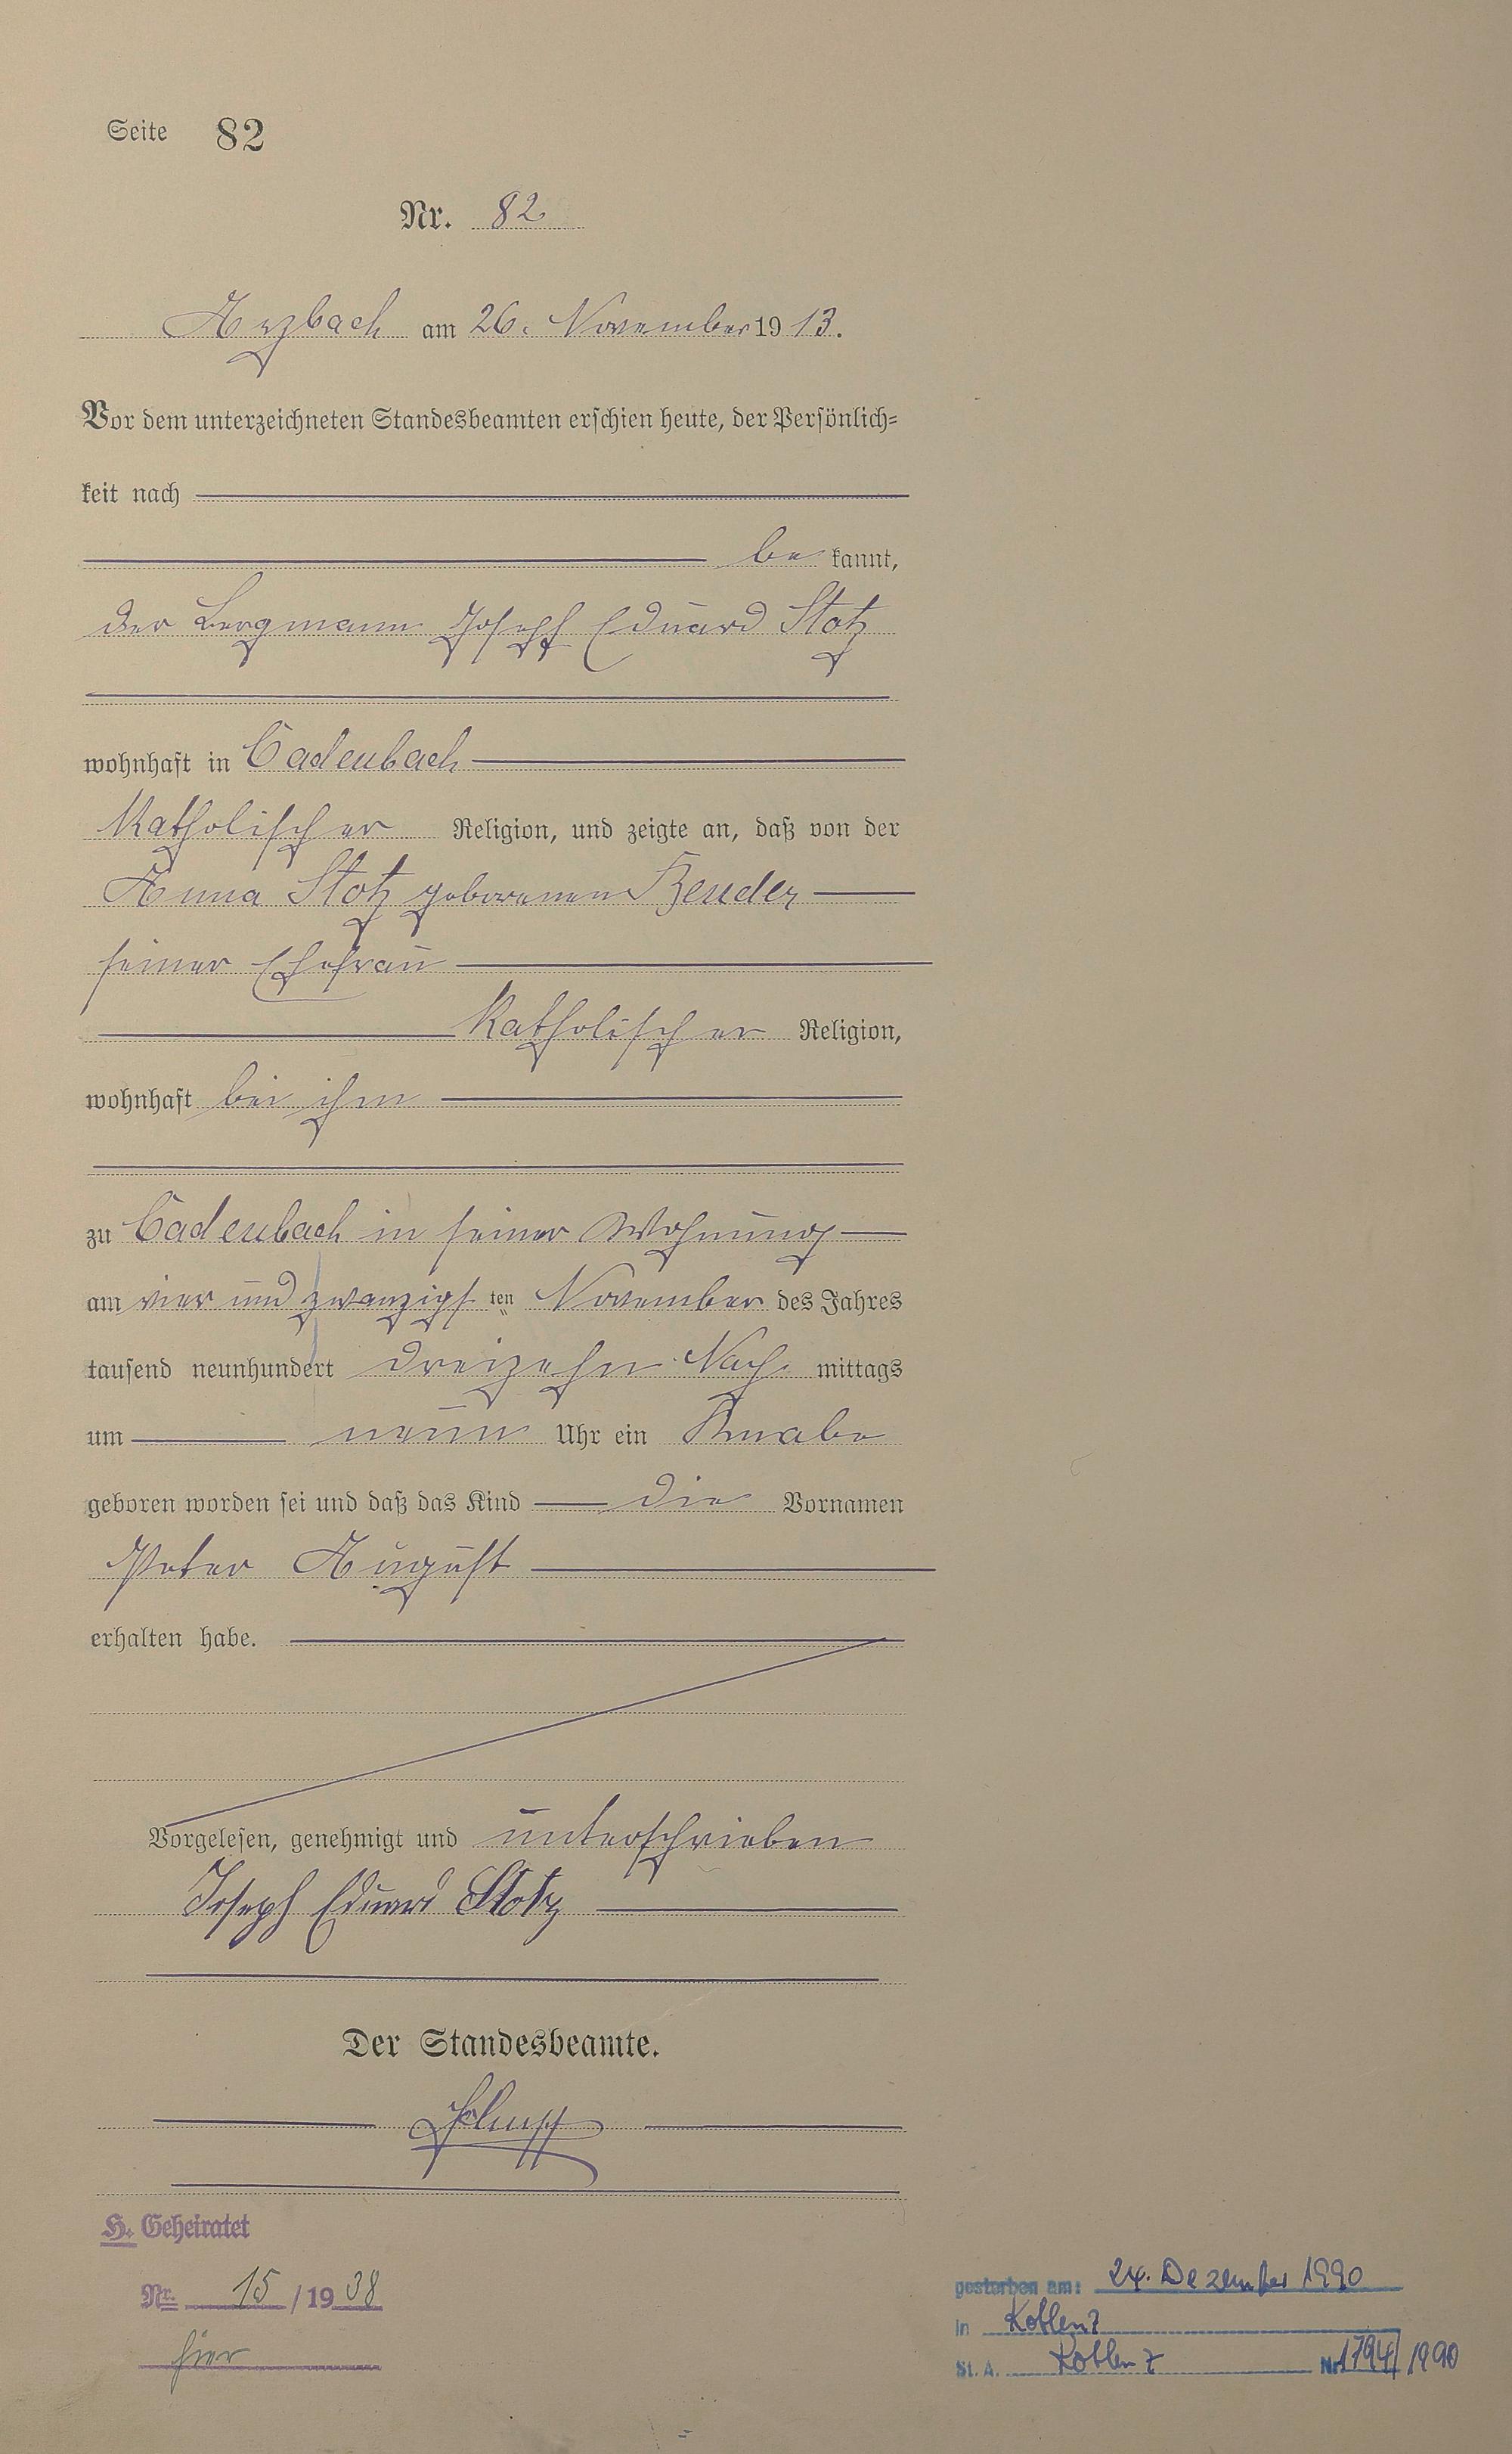 Seite 82
Nr. 82
Arzbach am 26. November 1913.
Vor dem unterzeichneten Standesbeamten erschien heute, der Persönlich=
keit nach
be kannt,
der Bergmann Joseph Eduard Stotz
wohnhaft in Cadenbach
katholischer Religion, und zeigte an, daß von der
Anna Stotz geborenen Bender
seiner Ehefrau
katholischer Religion,
wohnhaft bei ihm
zu Cadenbach in seiner Wohnung
am vier und zwanzigsten November des Jahres
tausend neunhundert dreizehn Nach mittags
um neun Uhr ein Knabe
geboren worden sei und daß das Kind die Vornamen
Peter August
erhalten habe.
Vorgelesen, genehmigt und unterschrieben
Joseph Eduard Stotz
Der Standesbeamte.
H. Geheiratet
Nr. 15 / 1938
hier
gestorben am: 24. Dezember 1990
in Koblenz
St. A. Koblenz Nr. 1794/1990